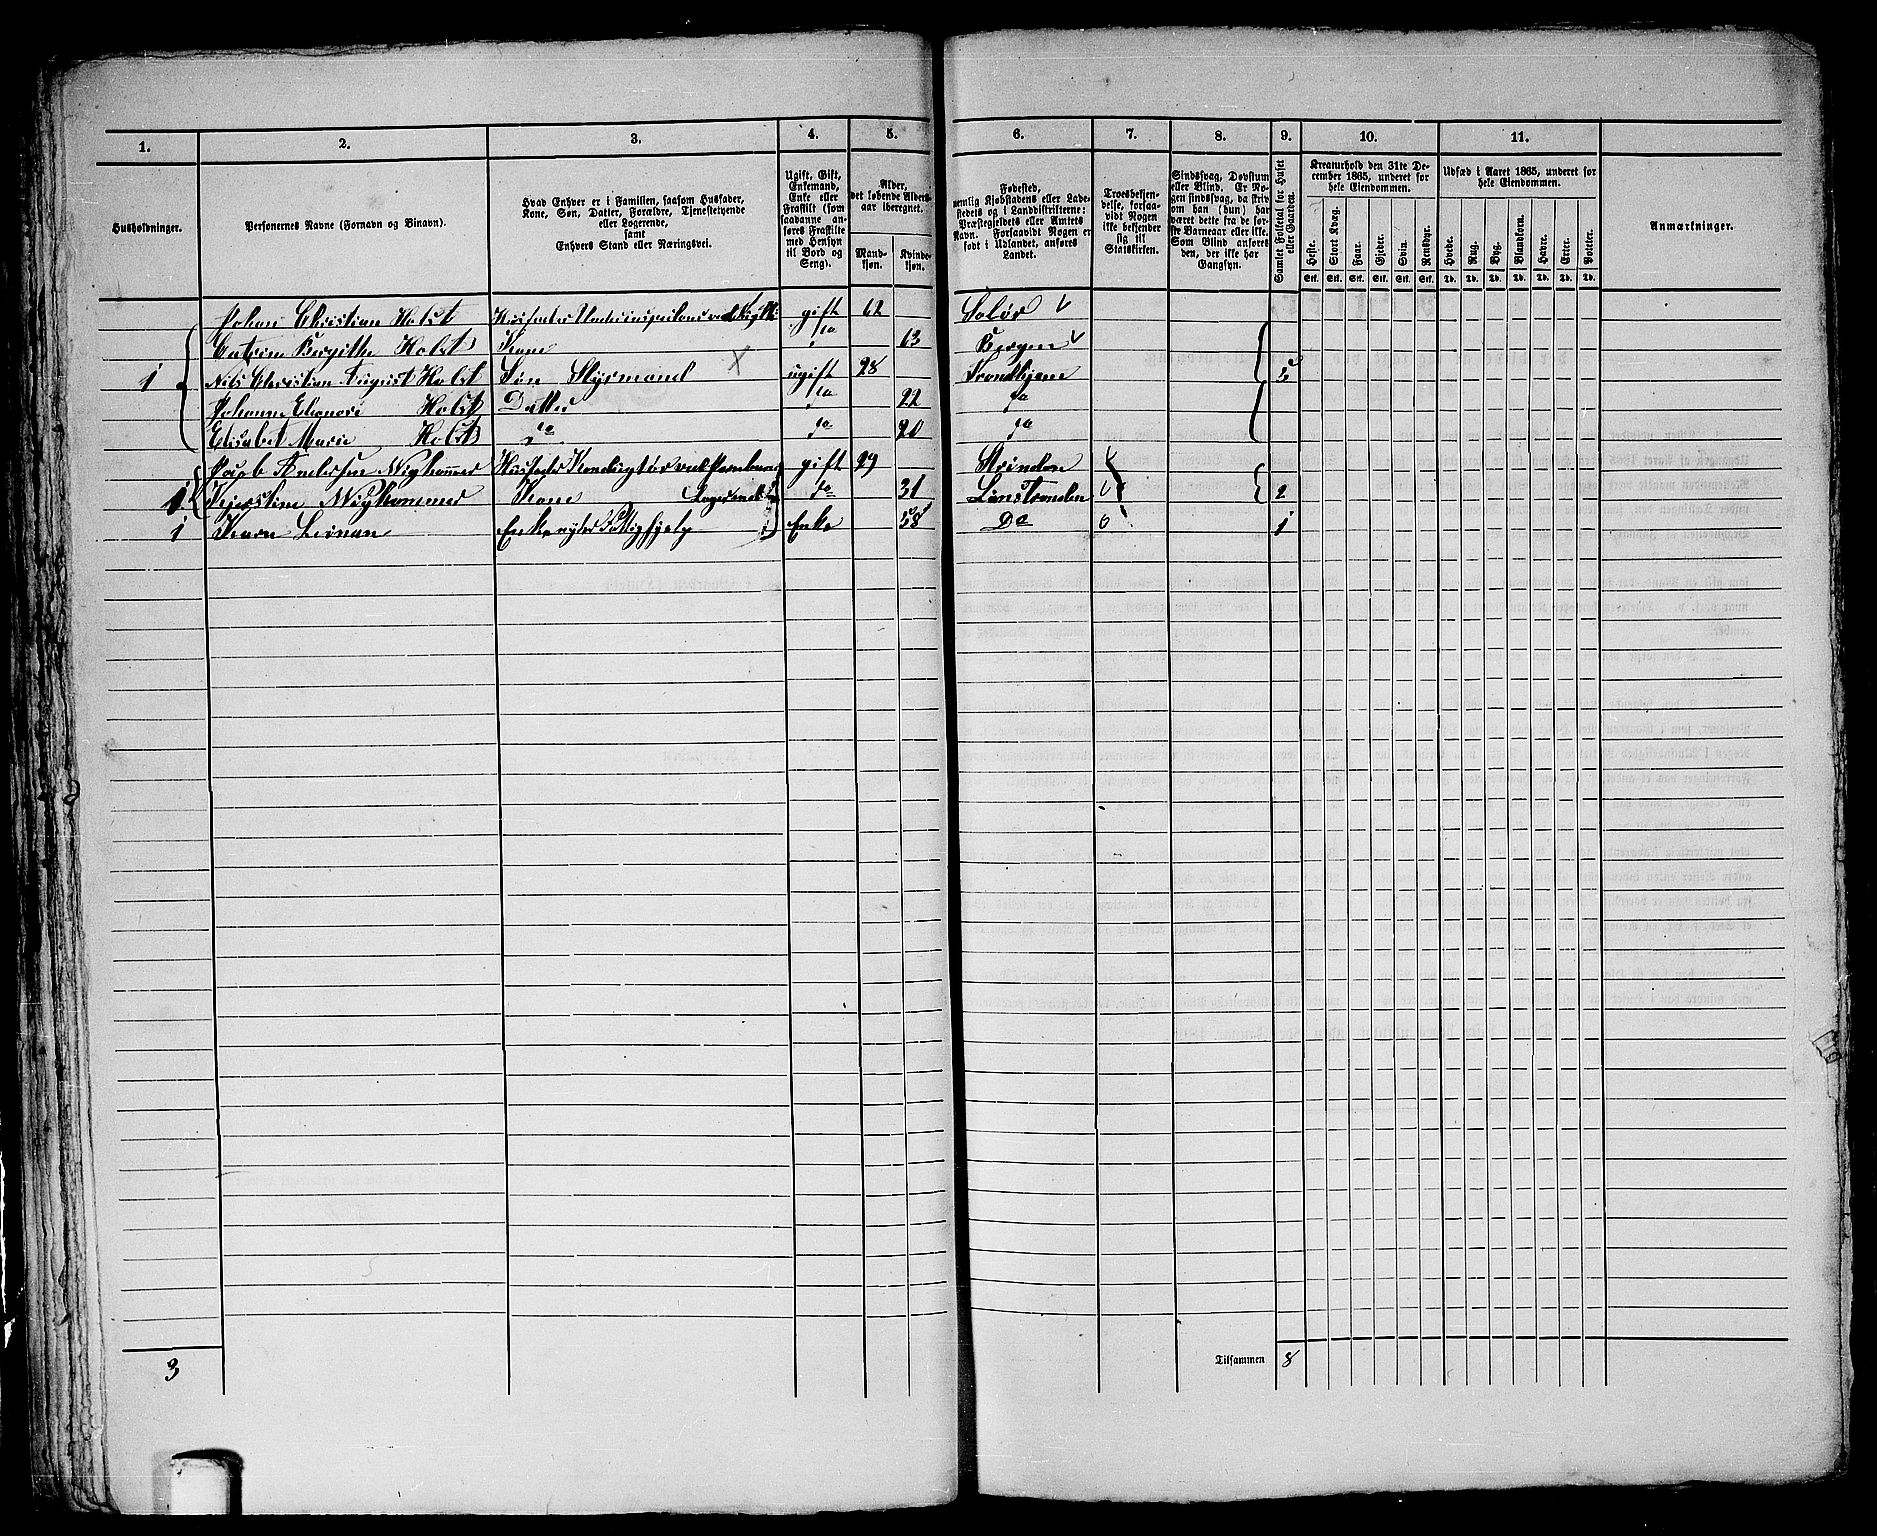 1. 2. 3. 4. 5. 6. 7. 8. 9. 10. 11.
Husholdninger.
Personernes Navne (Fornavn og Binavn).
Hvad Enhver er i Familien, saasom Husfader,
Kone, Søn, Datter, Forældre, Tjenestetyende
eller Logerende,
samt
Enhvers Stand eller Næringsvei.
Ugift, Gift,
Enkemand,
Enke eller
Fraskilt (som
saadanne an-
føres Fraskilte
med Hensyn
til Bord og
Seng).
Alder,
det løbende Alders-
aar iberegnet.
Mand-
kjøn.
Kvinde-
kjøn.
Fødested,
nemlig Kjøbstadens eller Lade-
stedets og i Landdistrikterne:
Præstegjeldets eller Amtets
Navn. Forsaavidt Nogen er
født i Udlandet, anføres
Landet.
Troesbekjen-
delse, forsaa-
vidt Nogen
ikke bekjender
sig til
Statskirken.
Sindssvag, Døvstum
eller Blind. Er No-
gen sindssvag, da skriv
om han (hun) har
været dette fra de før-
ste Barneaar eller ikke.
Som Blind anføres
den, der ikke har
Gangsyn.
Samlet Folketal for Huset
eller Gaarden.
Kreaturhold den 31te De-
cember 1865, underet for
hele Eiendommen.
Heste. Stort Kvæg. Faar. Gjeder. Svin. Rensdyr.
Stk. Stk. Stk. Stk. Stk. Stk.
Udsæd i Aaret 1865, underet for
hele Eiendommen.
Hvede. Rug. Byg. Blandkorn. Havre. Erter. Poteter.
Td. Td. Td. Td. Td. Td. Td.
Anmærkninger.
Johan Christian Holst gift 62 Solør
Catrine Birgithe Holst Kone do 63 Bergen
1 Nils Christian August Holst Søn Styrmand ugift 28 Trondhjem 5
Johanne Elenore Holst Datter do 22 do
Elisabet Marie Holst do do 20 do
Jacob Andersen Nighammer gift 29 Strinden
1 Kjerstine Nighammer Kone Logerende do 31 Leinstranden 2
1 Karn Leinan Enke nyder Fattighjelp Enke 58 Do 1
3 Tilsammen 8